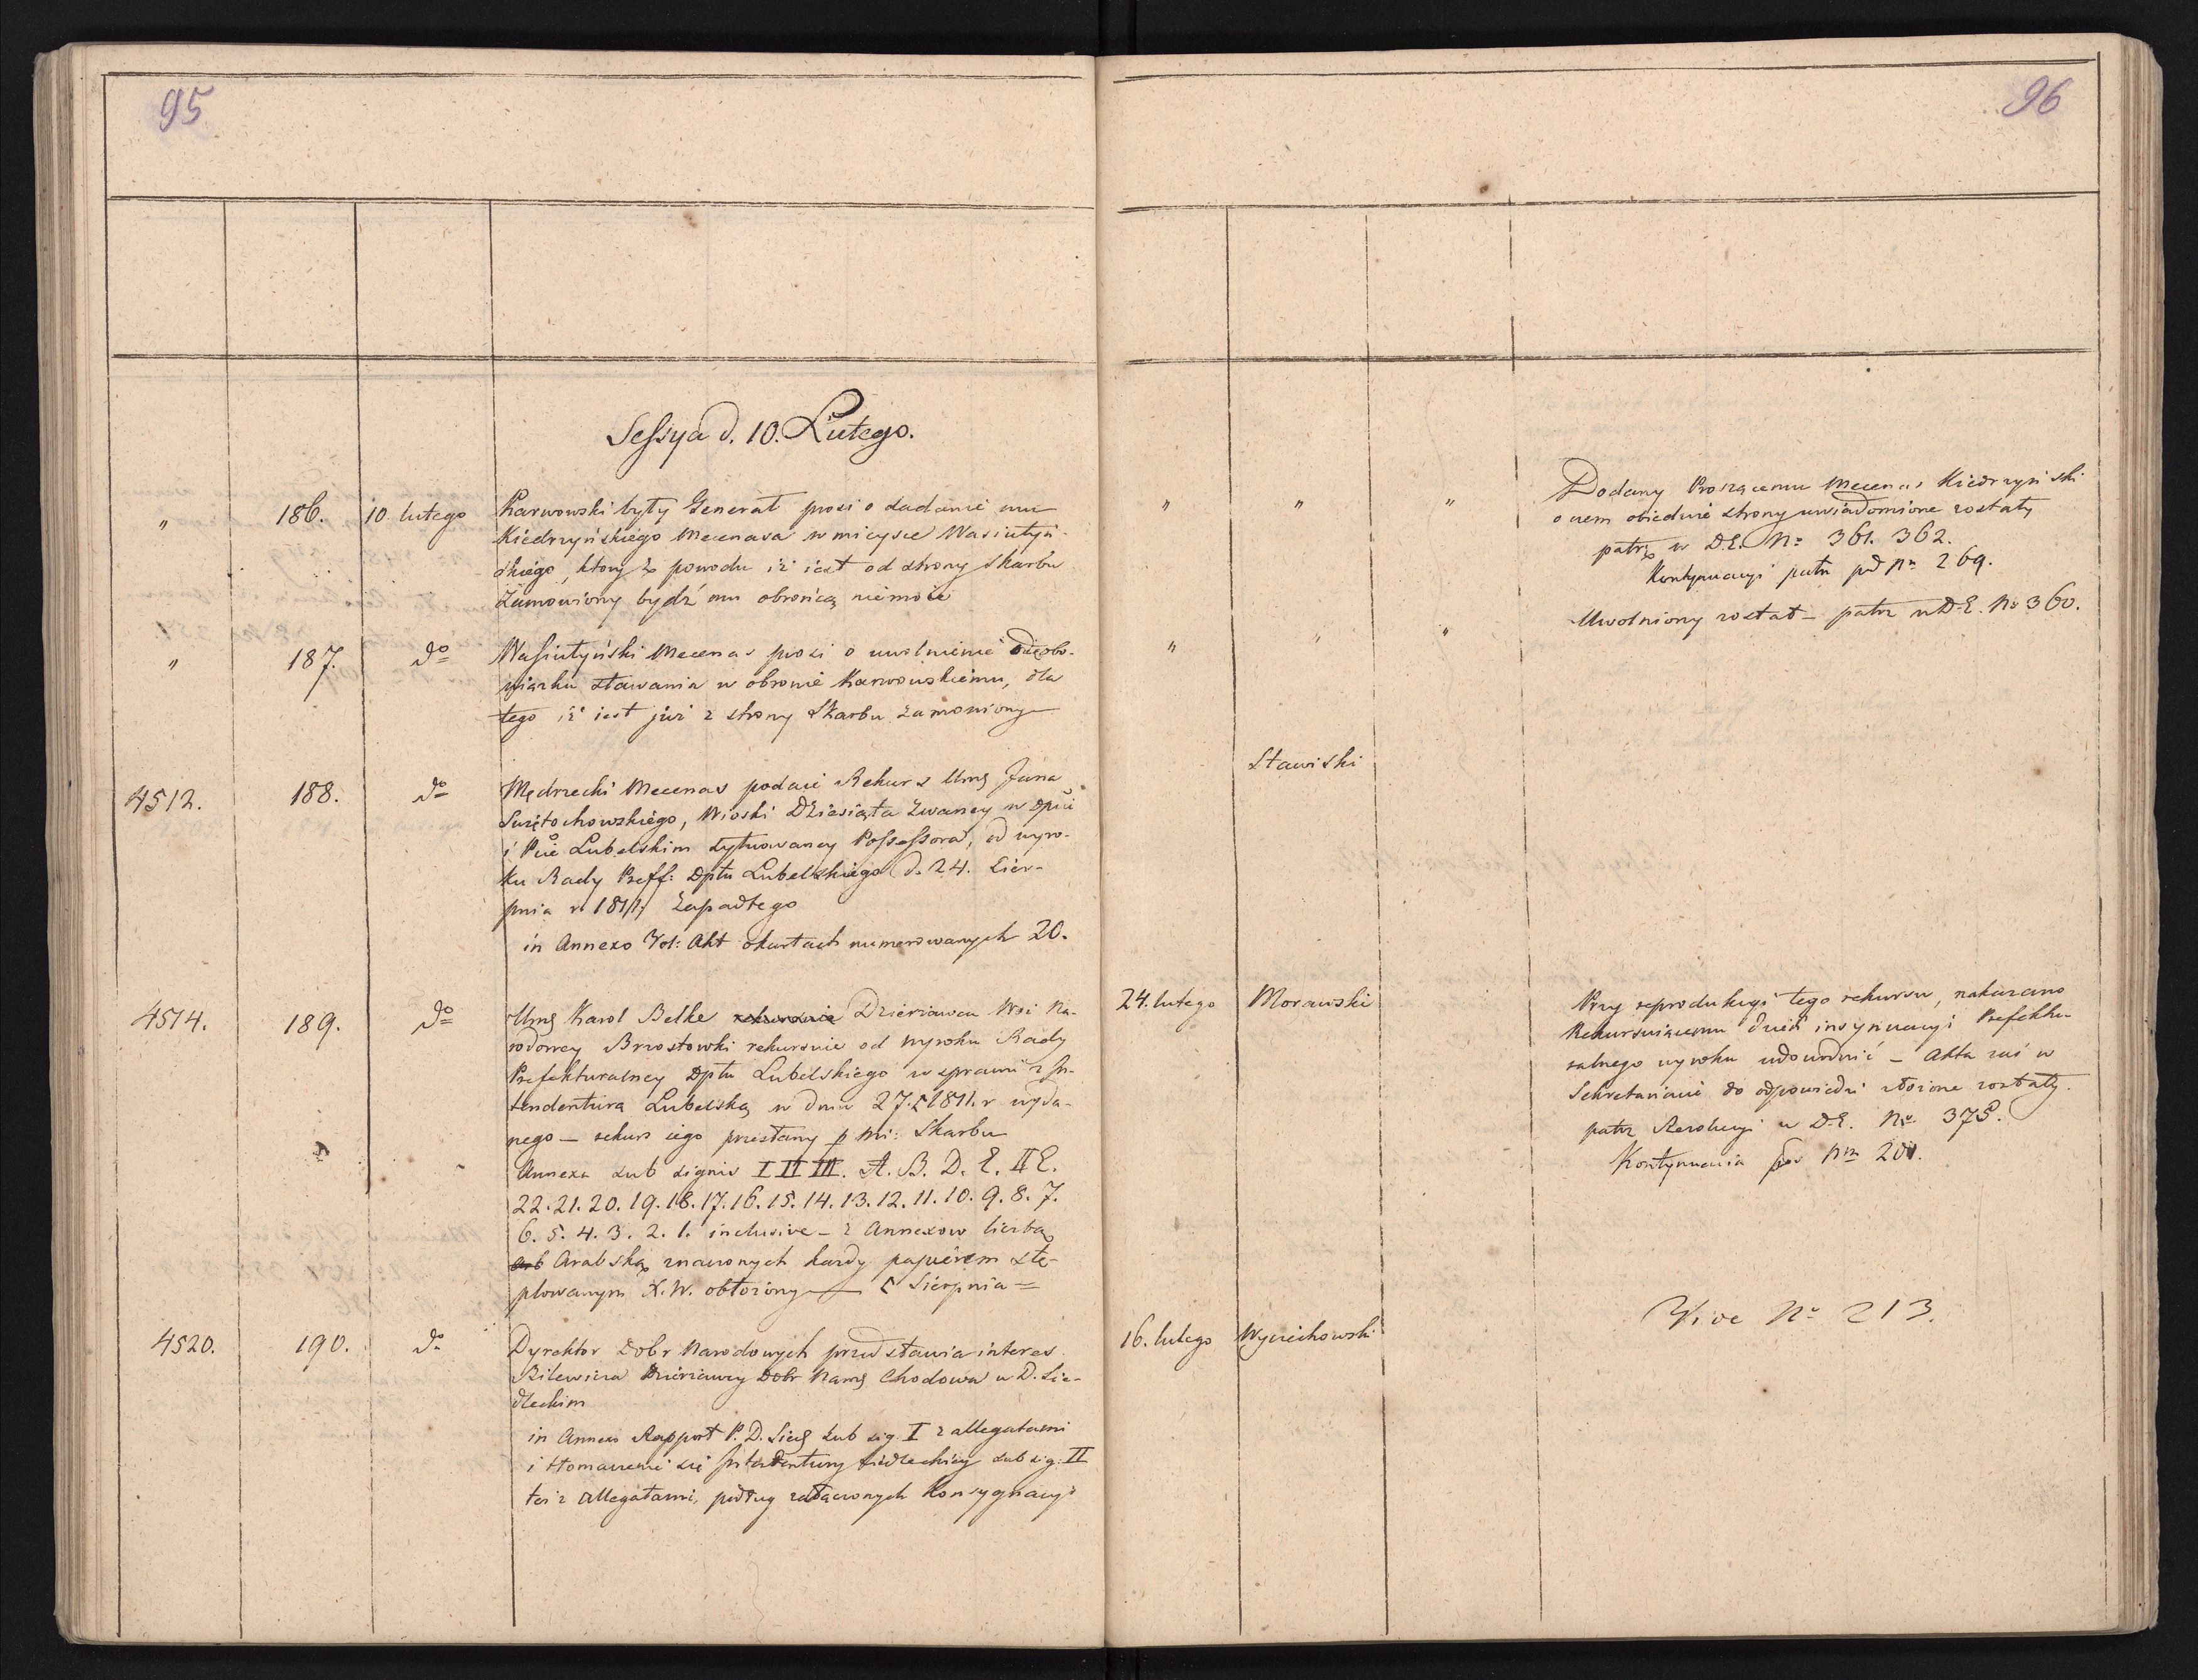 95
Sessya d. 10. Lutego.
" 186. 10 lutego Karwowski były Generał prosi o dodanie mu
Kiedrzyńskiego Mecenasa w mieysce Wasiutyń-
skiego, ktory z powodu iż iest od strony Skarbu
zamowiony bydź mu obrońcą niemoże
" 187. do Wasiutyński Mecenas prosi o uwolnienie od obo-
wiązku stawania w obronie Karwowskiemu, dla
tego iż iest już z strony Skarbu zamowiony
4512. 188. do Mędrzecki Mecenas podaie Rekurs Urng Jana
Swiętochowskiego, Wioski Dziesiąta zwaney w Dpcie
i Pcie Lubelskim sytuowaney Possessora, od wyro-
ku Rady Preff: Dptu Lubelskiego d. 24. Sier-
pnia r 1811 zapadłego
in Annexo Vol: Akt o kartach numerowanych 20.
4514. 189. do Urng Karol Belke rekursuie Dzierżawca Wsi Na-
rodowey Brzostowki rekursuie od wyroku Rady
Prefekturalney Dptu Lubelskiego w sprawie z In-
tendenturą Lubelską w dniu 27. 1811. r wyda-
nego — rekurs iego przesłany p Mi: Skarbu
Annexa sub signis I II III. A. B. D. E. II E.
22. 21. 20. 19. 18. 17. 16. 15. 14. 13. 12. 11. 10. 9. 8. 7.
6. 5. 4. 3. 2. 1. inclusive — z Annexow liczbą
arb Arabską znaczonych każdy papierem stę-
plowanym X. W. obłożony — Sierpnia =
4520. 190. do Dyrektor Dobr Narodowych przedstawia interes
Bilewicza Dzierżawcy Dobr Narng Chodowa w D. Sie-
dleckim
in Annexo Rapport P. D. Sieg sub sig. I z allegatami
i tłomaczenie się Intendentury Siedleckiey sub sig. II
też z allegatami, podług załączonych Konsygnacyi
96
" " " Dodany Proszącemu Mecenas Kiedrzyński
o czem obiedwie strony uwiadomione zostały
patrz w D.E. No 361. 362.
Kontynuacyi patrz pod No 269.
" " " Uwolniony został — patrz w D.E. No 360.
Stawiski
24. lutego Morawski Przy reprodukcyi tego rekursu, nakazano
Rekursuiącemu dzień insynuacyi Prefektu-
ralnego wyroku udowodnić — Akta zaś w
Sekretariacie do odpowiedzi złożone zostały.
patrz Rezolucyi w D.E. No 375.
Kontynuacia pod Nm 201.
16. lutego Wyciechowski Vide No 213.